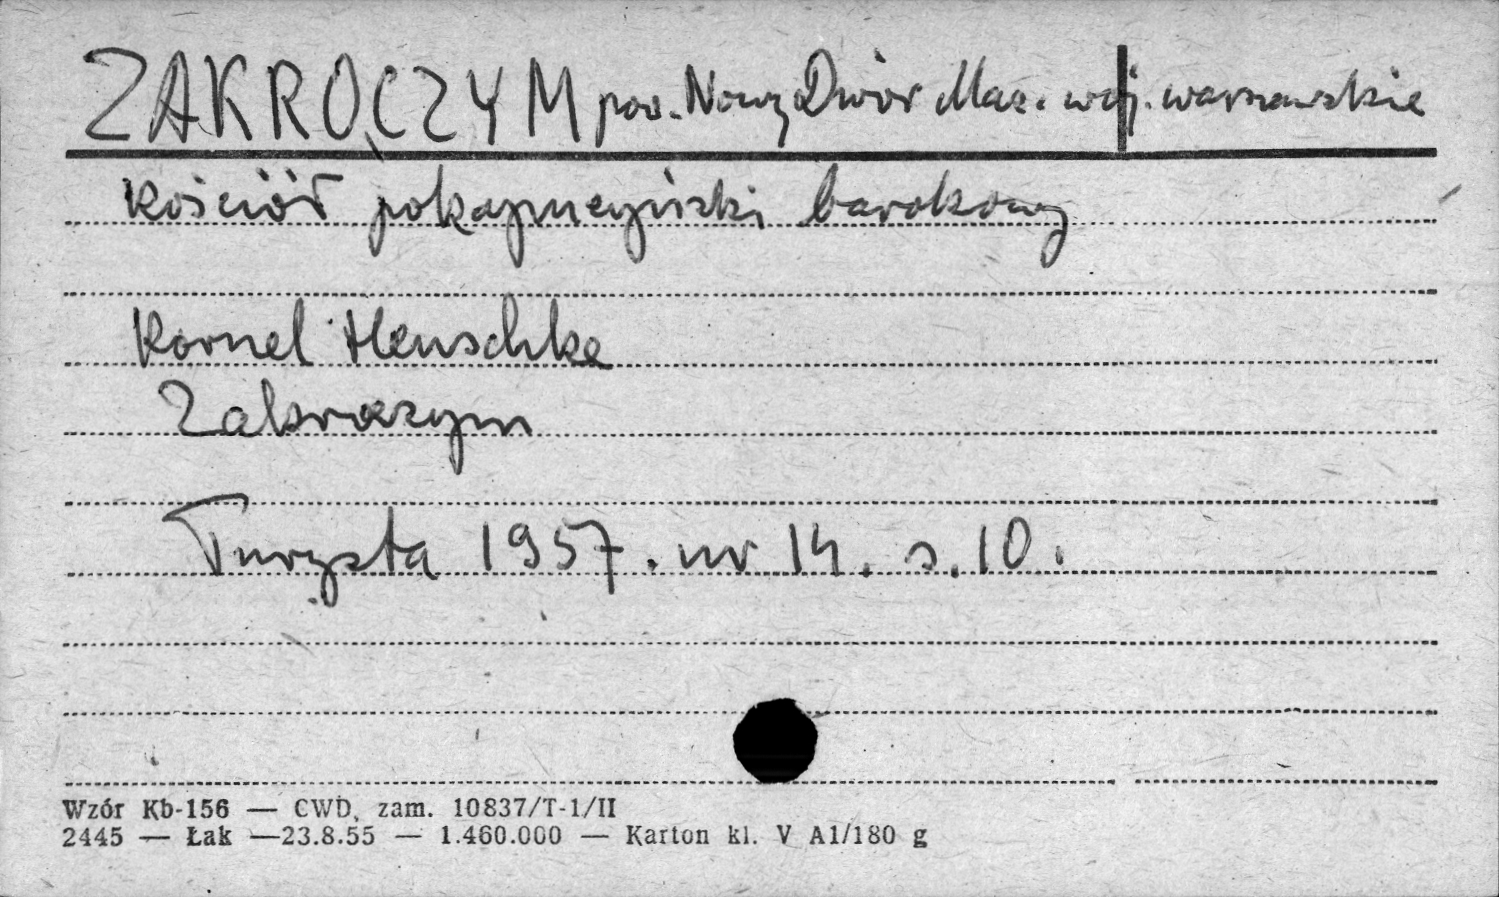 ZAKROCZYM pow. Nowy Dwór Maz. woj. warszawskie
Kościół pokapucyński barokowy
Kornel Henschke
Zakroczym
Turysta 1957. nr 14. s. 10.
Wzór Kb-156 — CWD, zam. 10837/T-1/II
2445 — Łak —23.8.55 — 1.460.000 — Karton kl. V A1/180 g